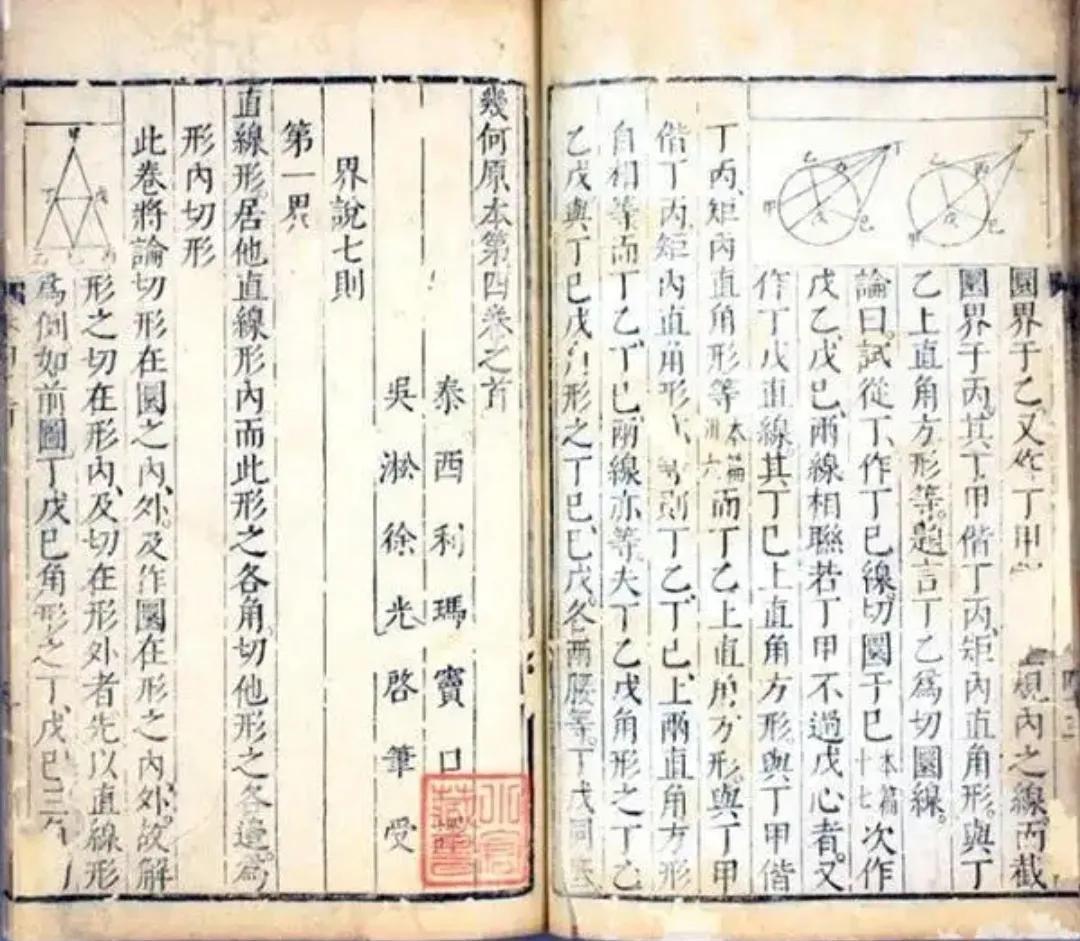 圜界于乙又作丁甲 規內之線而截
圜界于丙其丁甲偕丁丙矩內直角形與丁
乙上直角方形等題言丁乙為切圜線
論曰試從丁作丁己線切圜于己本篇十七次作
戊乙戊己兩線相聯若丁甲不過戊心者又
作丁戊直線其丁己上直角方形與丁甲偕
丁丙矩內直角形等本篇卅六而丁乙上直角方形與丁甲
偕丁丙矩內直角形 則丁乙丁己上兩直角方形
自相等而丁乙丁己兩線亦等夫丁乙戊角形之丁乙
乙戊與丁己戊角形之丁己己戊各兩腰等丁戊同
甲 乙 丙 丁 戊 己
甲 乙 丙 丁 戊 己
幾何原本第四卷之首
泰西利瑪竇口
吳淞徐光啓筆受
界說七則
第一界
直線形居他直線形內而此形之各角切他形之各邊為
形內切形
此卷將論切形在圜之內外及作圜在形之內外故解
形之切在形內及切在形外者先以直線形
為例如前圖丁戊己角形之丁戊己三角
甲 丁 戊 乙 己 丙